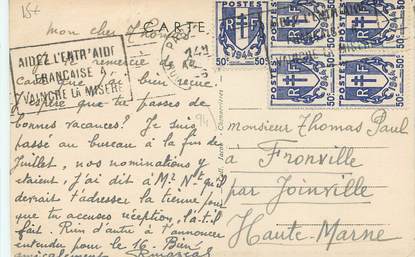 15+
CARTE
mon cher Thomas
remercie de ta
Carte que j'ai bien reçue
J'espère que tu passes de
bonnes vacances? Je suis
passé au bureau à la fin de
Juillet, nos nominations y
étaient, j'ai dit à Mr. qu'il
devrait t'adresser la tienne pour
que tu accuses réception, l'a-t-il
fait. Rien d'autre à t'annoncer
entendu pour le 16. Bien
amicalement
AIDEZ L'ENTR'AIDE
FRANÇAISE
VAINCRE LA MISÈRE
POSTES
RF
50c 50c
Monsieur Thomas Paul
à Fronville
par Joinville
Haute-Marne